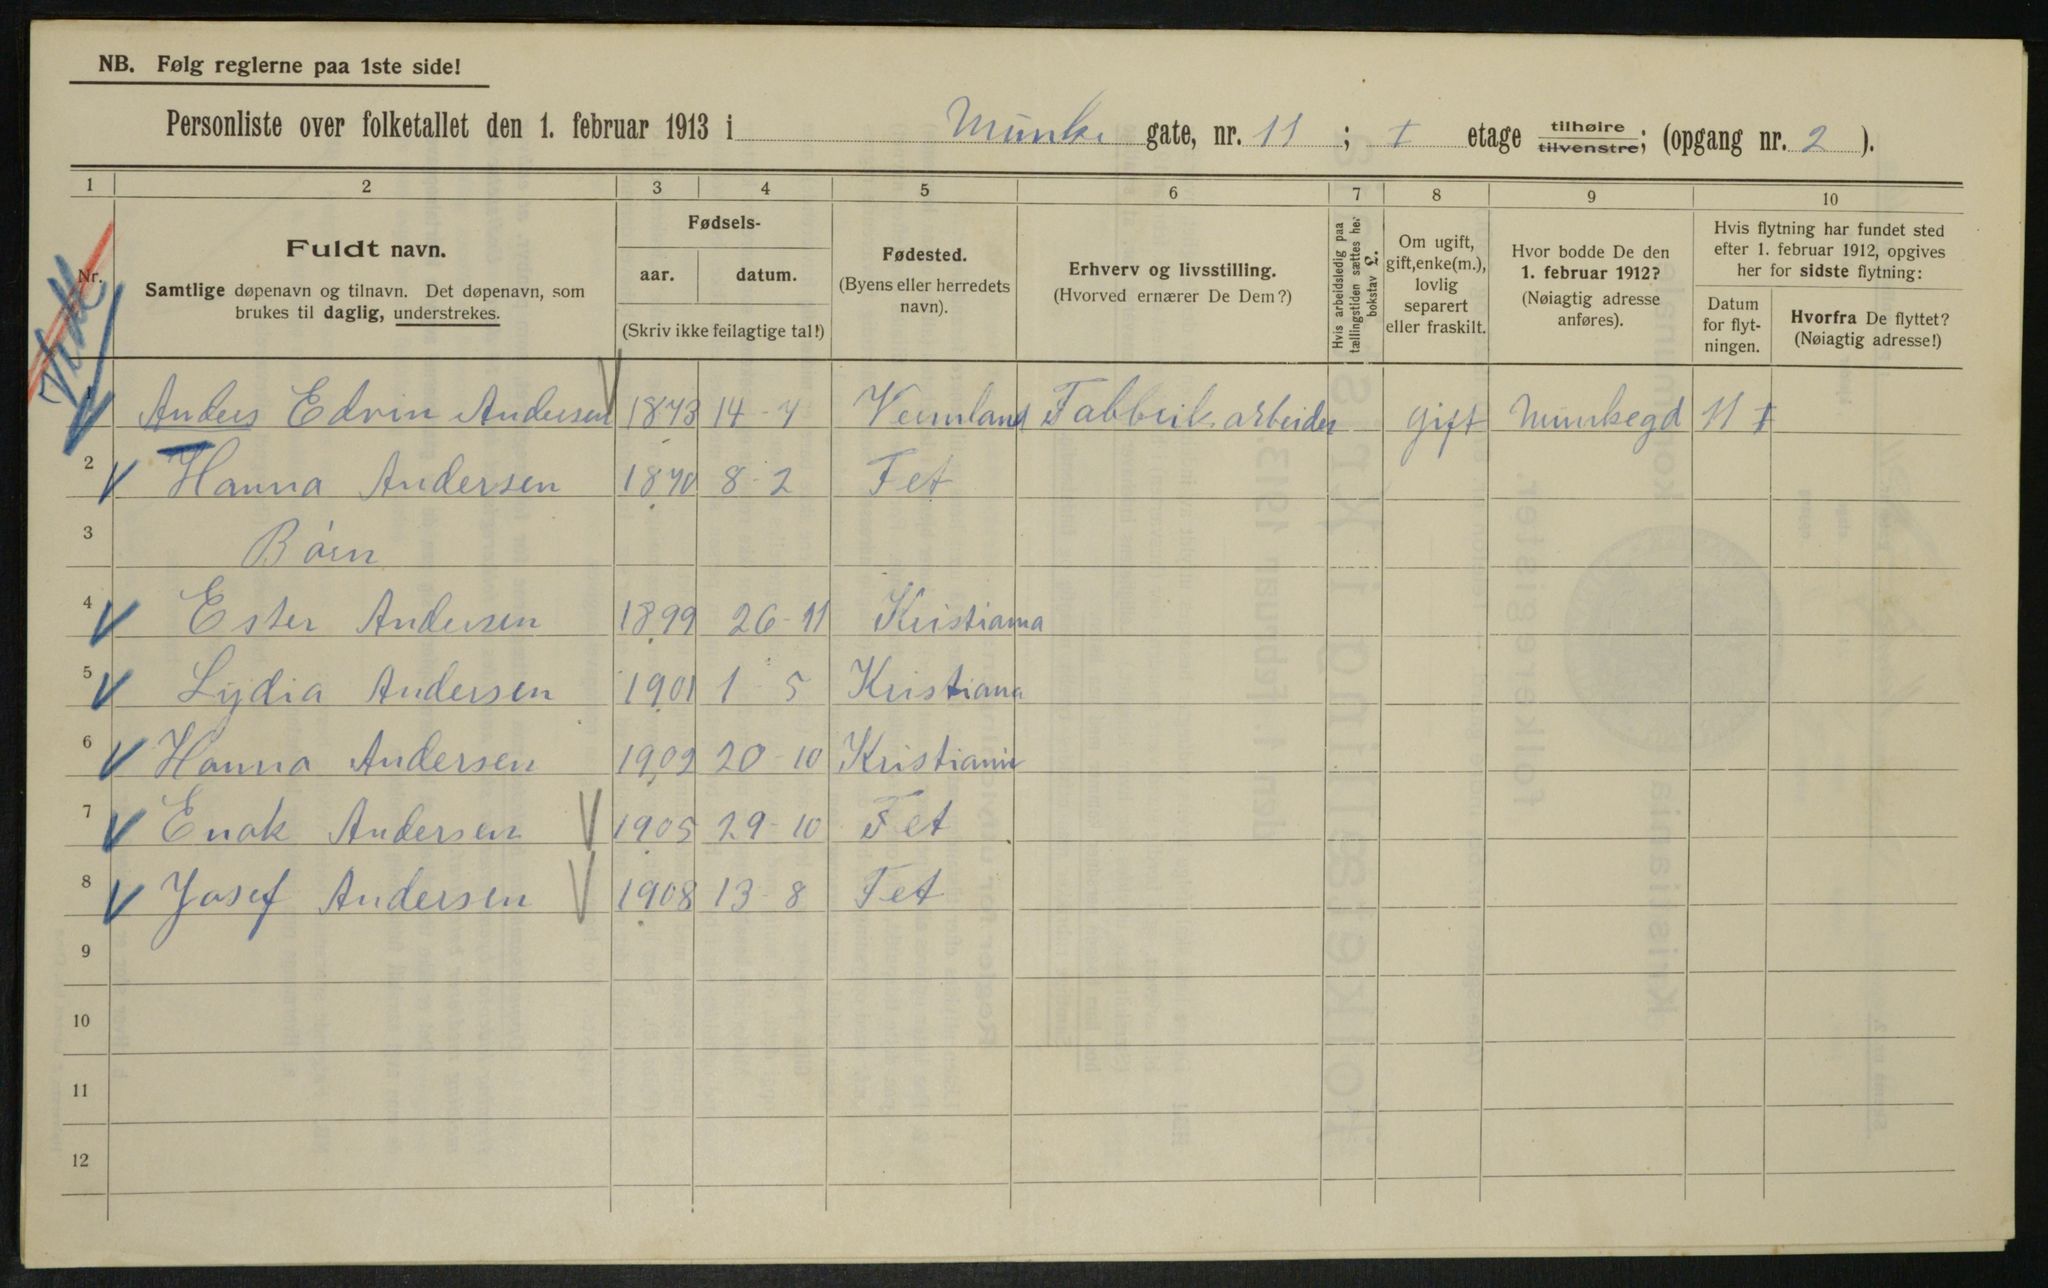 NB. Følg reglerne paa 1ste side!
Personliste over folketallet den 1. februar 1913 i Munke gate, nr. 11 ; I etage tilhøire tilvenstre; (opgang nr. 2 ).
1 2 3 4 5 6 7 8 9 10
Nr.
Fuldt navn.
Samtlige døpenavn og tilnavn. Det døpenavn, som
brukes til daglig, understrekes.
Fødsels-
aar. datum.
(Skriv ikke feilagtige tal!)
Fødested.
(Byens eller herredets
navn).
Erhverv og livsstilling.
(Hvorved ernærer De Dem?)
Hvis arbeidsledig paa
tællingstiden sættes her
bokstav L.
Om ugift,
gift, enke(m.),
lovlig
separert
eller fraskilt.
Hvor bodde De den
1. februar 1912?
(Nøiagtig adresse
anføres).
Hvis flytning har fundet sted
efter 1. februar 1912, opgives
her for sidste flytning:
Datum
for flyt-
ningen.
Hvorfra De flyttet?
(Nøiagtig adresse!)
1 Anders Edvin Andersen 1873 14-4 Vermland Fabbrik arbeider gift Munkegd 11 I
2 Hanna Andersen 1870 8-2 Fet
3 Børn
4 Ester Andersen 1899 26-11 Kristiania
5 Lydia Andersen 1901 1-5 Kristiana
6 Hanna Andersen 1902 20-10 Kristiania
7 Enok Andersen 1905 29-10 Fet
8 Josef Andersen 1908 13-8 Fet
9
10
11
12